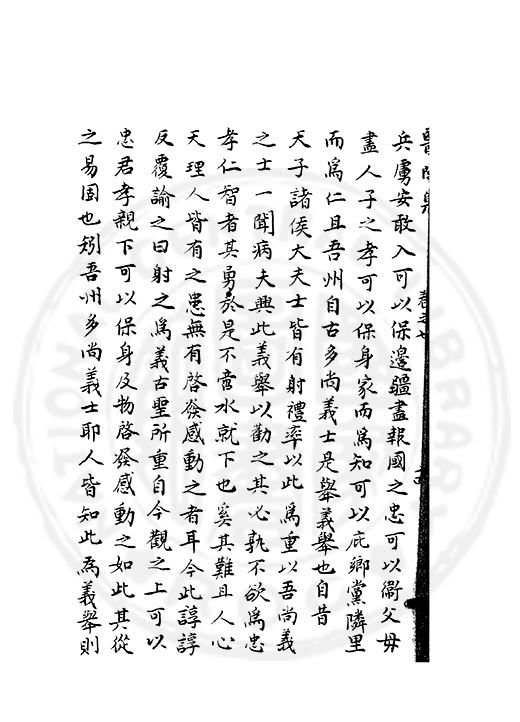 卷之七
兵虜安敢入可以保邊疆盡報國之忠可以衞父毋
盡人子之孝可以保身家而爲知可以庇鄉黨隣里
而爲仁且吾州自古多尚義士是舉義舉也自昔
天子諸侯大夫士皆有射禮率以此爲重以吾尚義
之士一聞病夫興此義舉以勸之其必孰不欲爲忠
孝仁智者其勇於是不啻水就下也奚其難且人心
天理人皆有之患無有啓發感動之者耳今此諄諄
反覆諭之曰射之爲義古聖所重自今觀之上可以
忠君孝親下可以保身及物啓發感動之如此其從
之易固也矧吾州多尚義士耶人皆知此爲義舉則